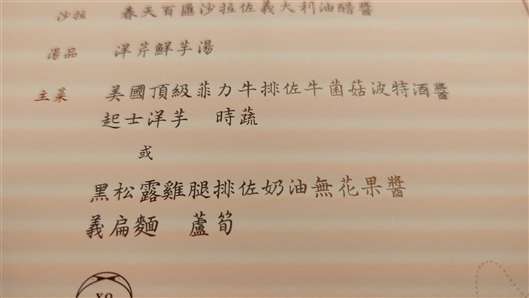 沙拉 春天百匯沙拉佐義大利油醋醬
湯品 洋芹鮮芋湯
主菜 美國頂級菲力牛排佐牛菌菇波特酒醬
起士洋芋 時蔬
或
黑松露雞腿排佐奶油無花果醬
義扁麵 蘆筍